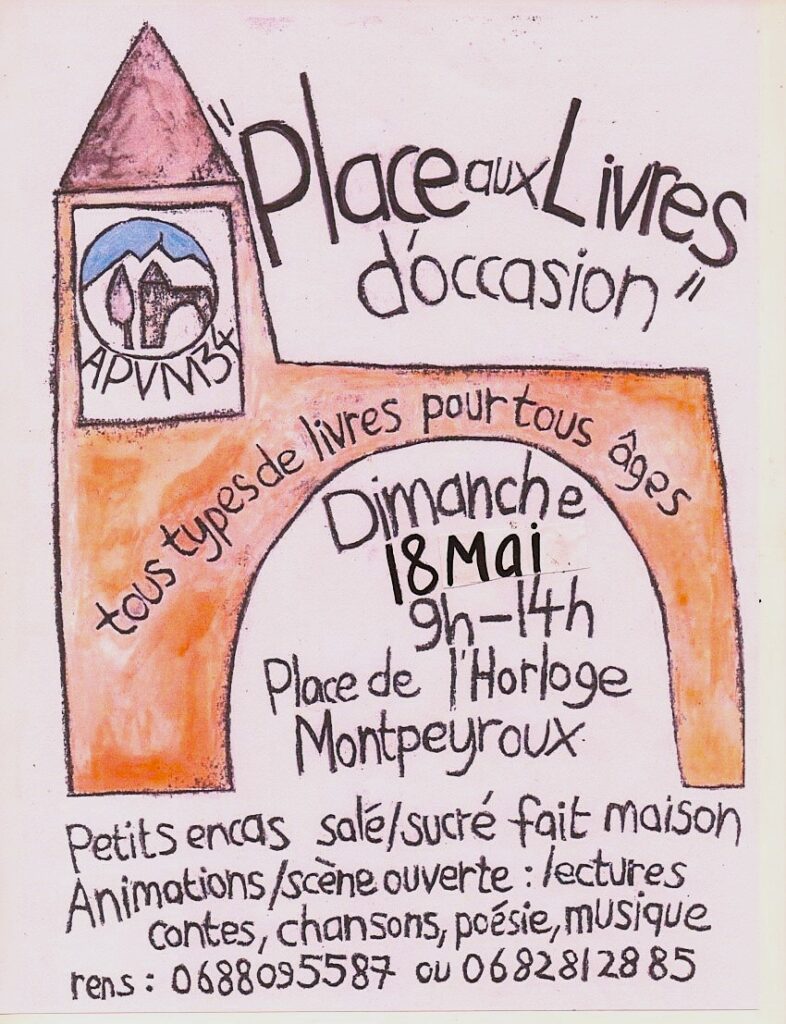 "Place aux Livres
d'occasion"
APVM34
tous types de livres pour tous âges
Dimanche
18 Mai
9h-14h
Place de l'Horloge
Montpeyroux
Petits encas salé/sucré fait maison
Animations/scène ouverte : lectures
contes, chansons, poésie, musique
rens : 0688095587 ou 0682812885